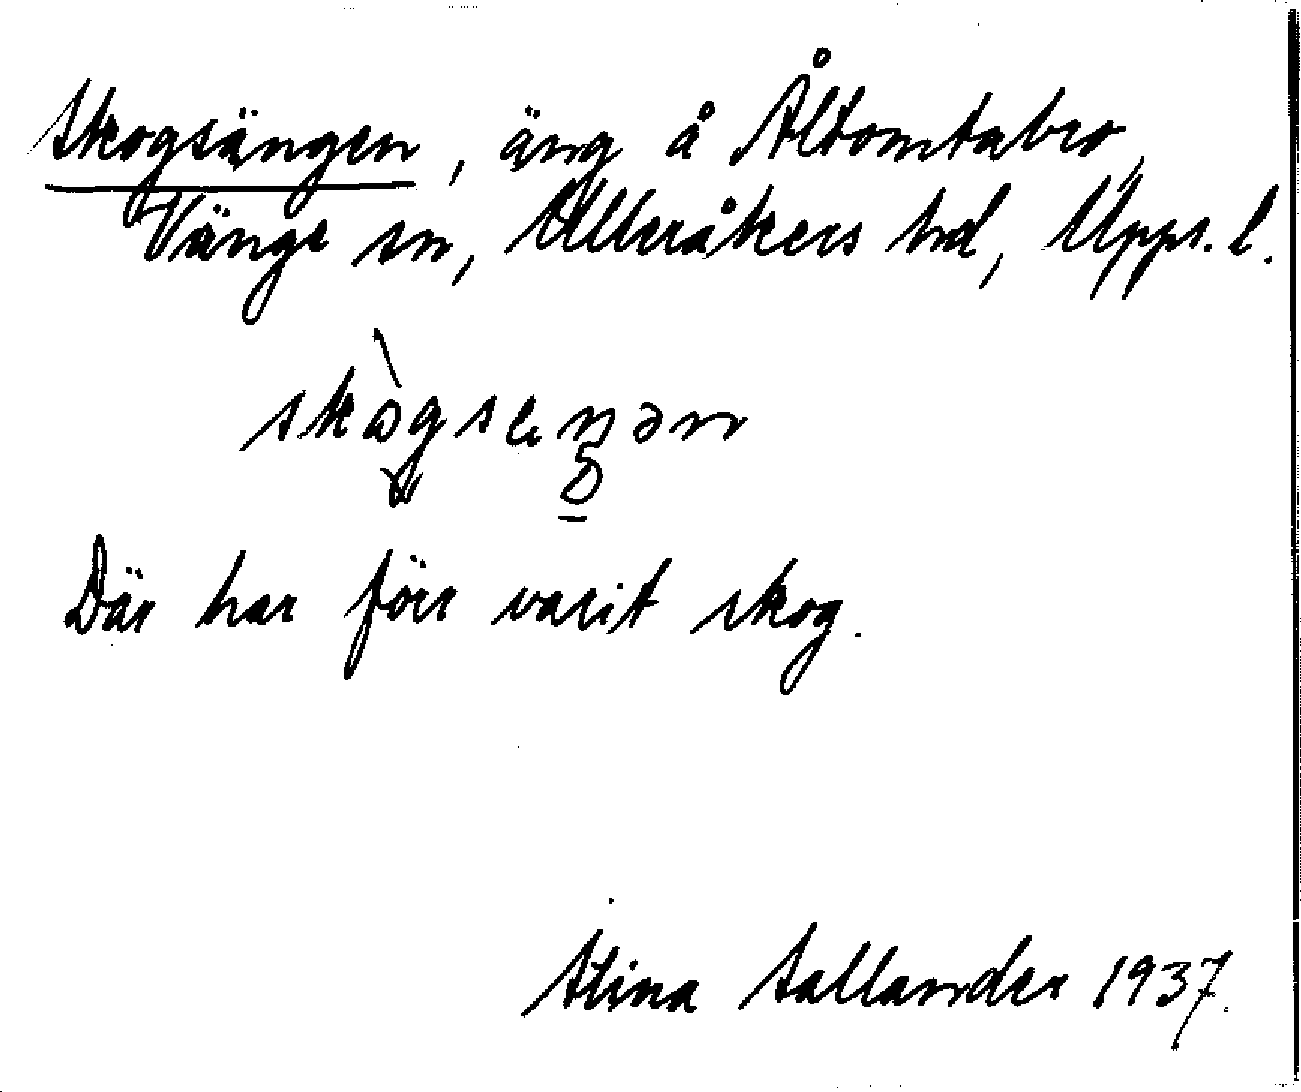 Skogsängen, äng å Åltomtabro,
Vänge sn, Ulleråkers hd, Upps. l.
skògseŋən
Där har förr varit skog.
Stina Sallander 1937.